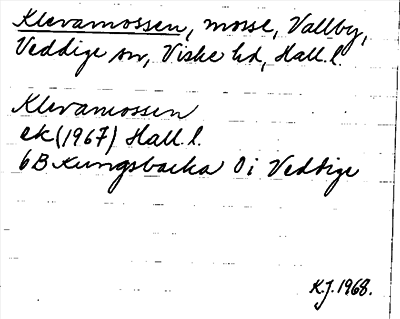 Klevamossen, mosse, Vallby,
Veddige sn, Viske hd, Hall. l.
Klevamossen
ek (1967) Hall. l.
6B Kungsbacka 0i Veddige
KJ. 1968.